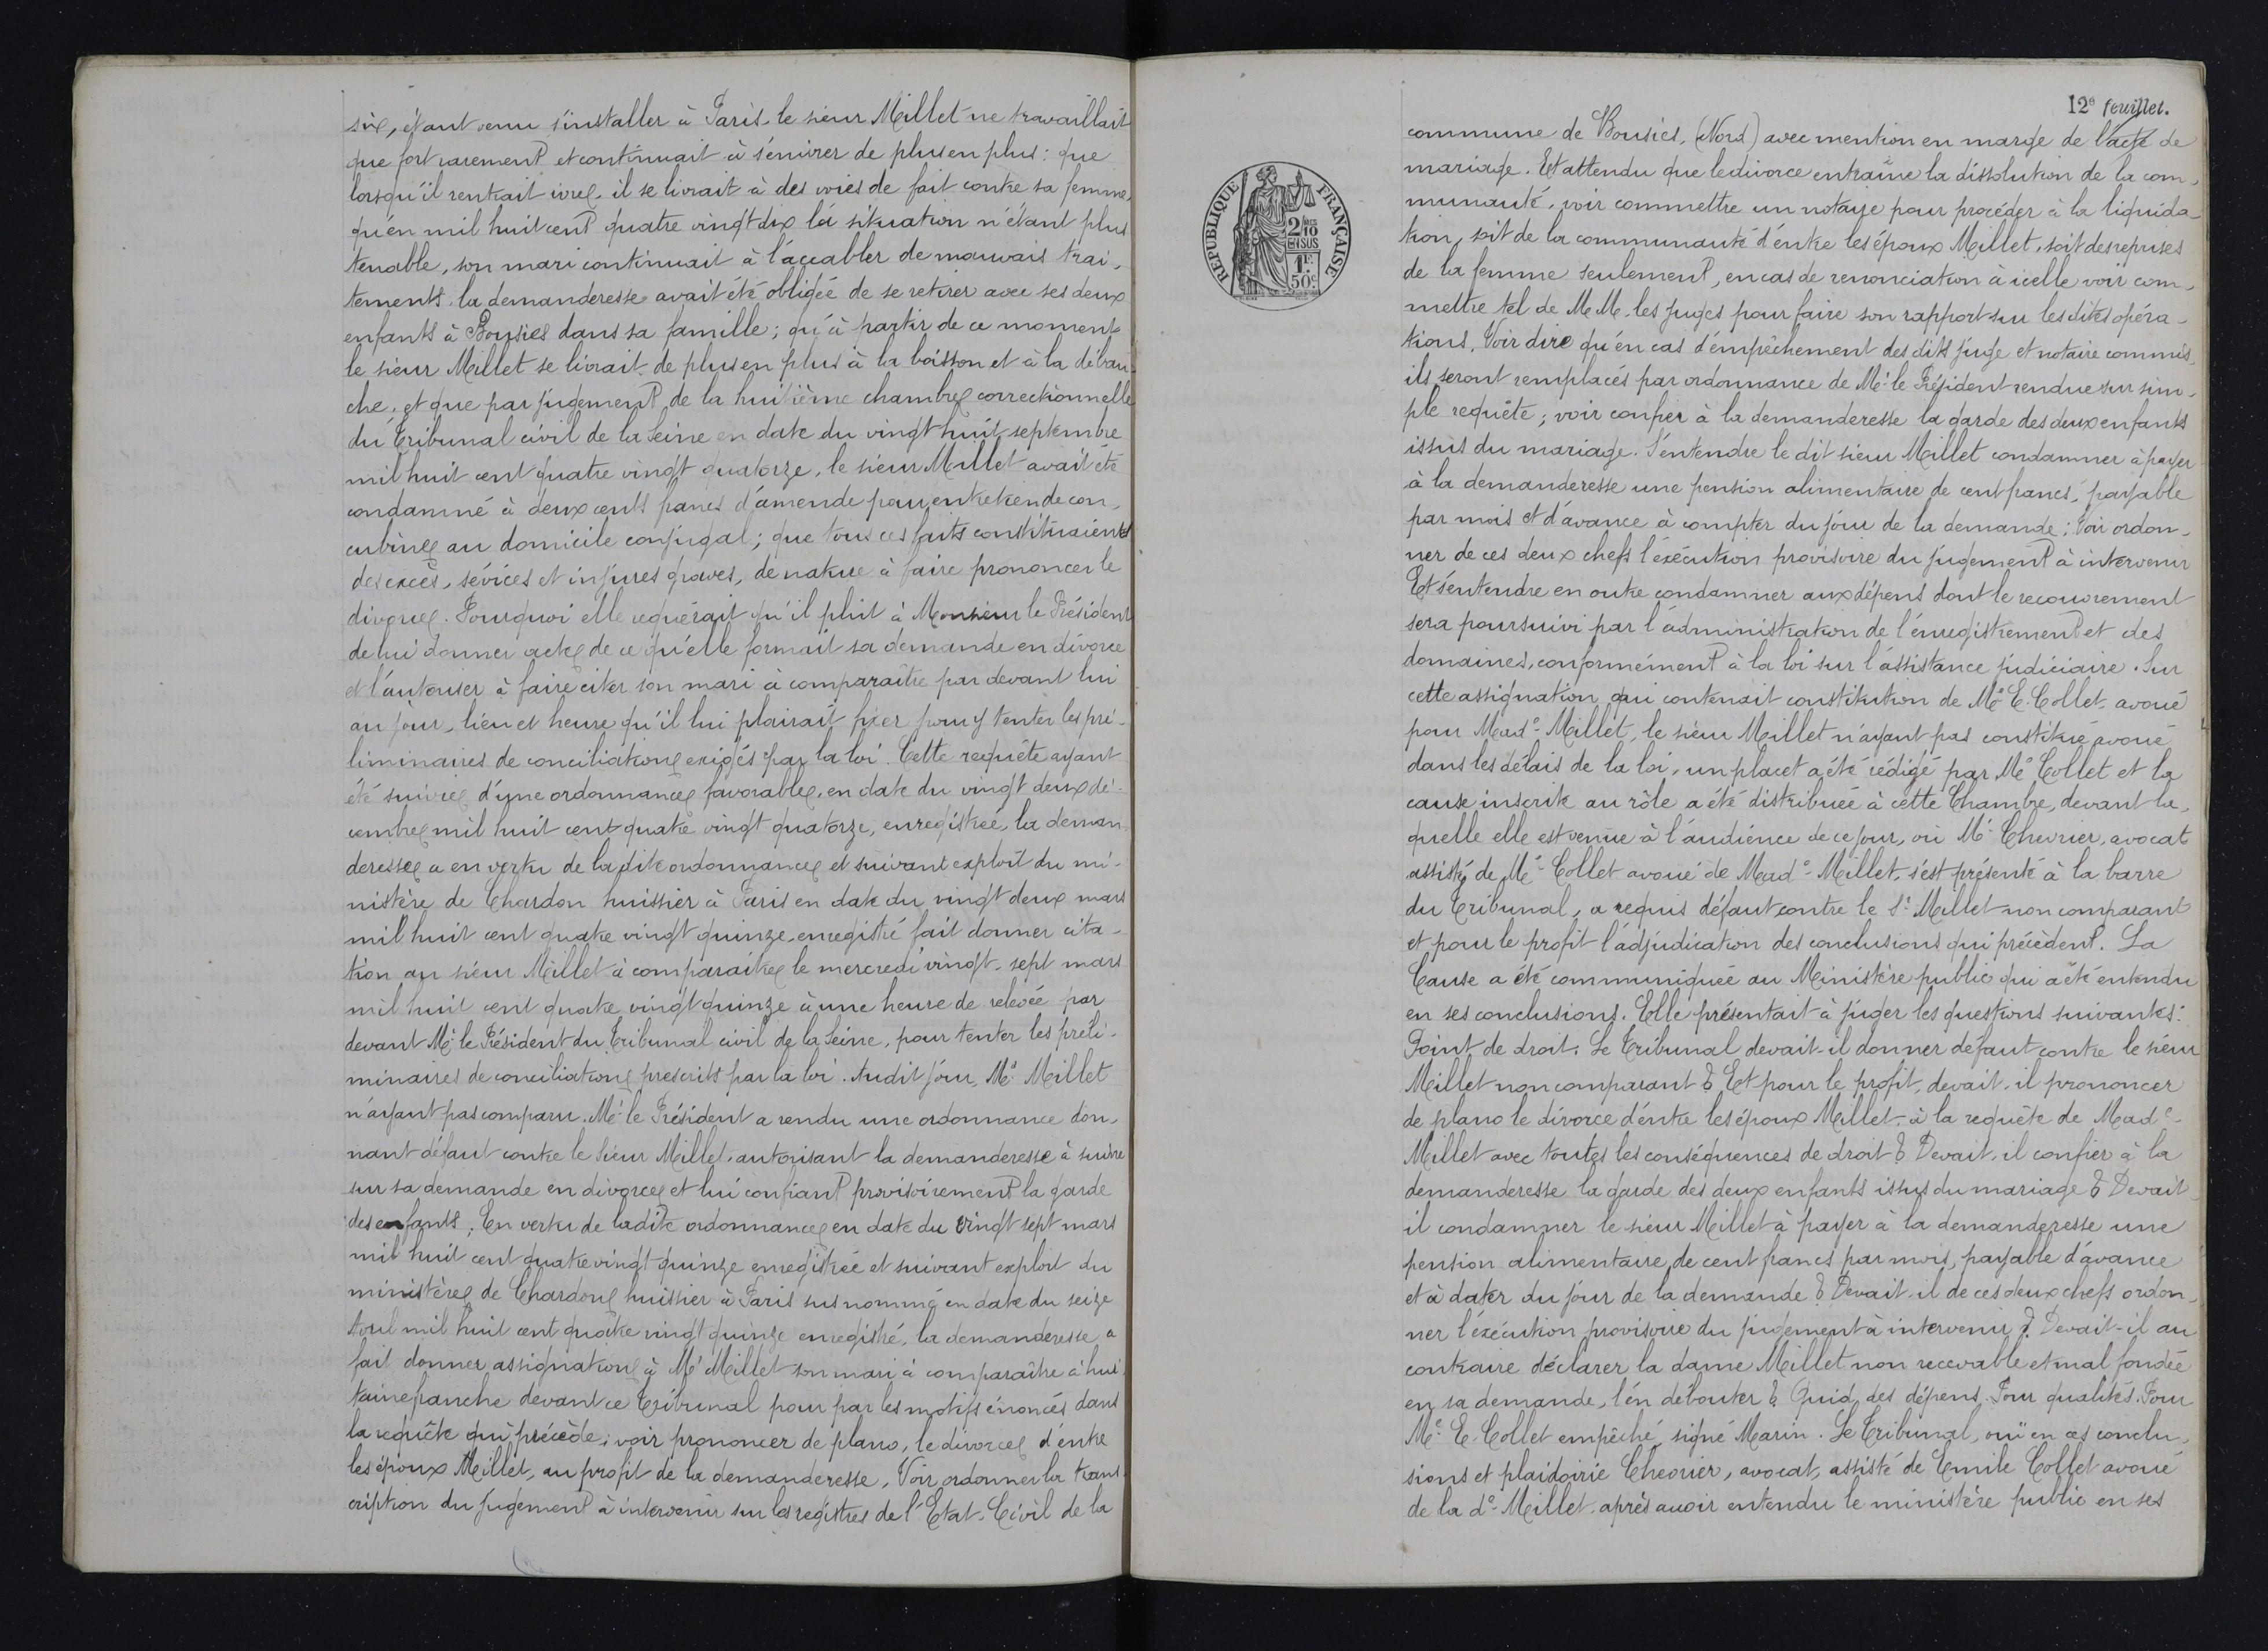 six, étant venu s'installer à Paris, le sieur Millet ne travaillait
que fort rarement et continuait à s'enivrer de plus en plus: que
lorsqu'il rentrait ivre, il se livrait à des voies de fait contre sa femme,
qu'en mil huit cent quatre vingt dix la situation n'étant plus
tenable, son mari continuait à l'accabler de mauvais trai-
tements la demanderesse avait été obligée de se retirer avec ses deux
enfants à Bousies dans sa famille; qu'à partir de ce moment
le sieur Millet se livrait de plus en plus à la boisson et à la débau-
che, et que par jugement de la huitième chambre correctionnelle
du Tribunal civil de la Seine en date du vingt huit septembre
mil huit cent quatre vingt quatorze, le sieur Millet avait été
condamné à deux cents francs d'amende pour entretien de con-
cubine au domicile conjugal; que tous ces faits constituaient
des excès, sévices et injures graves, de nature à faire prononcer le
divorce. Pourquoi elle requérait qu'il plut à Monsieur le Président
de lui donner acte de ce qu'elle formait sa demande en divorce
et l'autoriser à faire citer son mari à comparaître par devant lui
au jour, lieu et heure qu'il lui plairait fixer pour y tenter les pré-
liminaires de conciliation exigés par la loi. Cette requête ayant
été suivie d'une ordonnance favorable, en date du vingt deux dé-
cembre mil huit cent quatre vingt quatorze, enregistrée, la deman-
deresse a en vertu de la dite ordonnance et suivant exploit du mi-
nistère de Chardon huissier à Paris en date du vingt deux mars
mil huit cent quatre vingt quinze, enregistré fait donner cita-
tion au sieur Millet à comparaître le mercredi vingt-sept mars
mil huit cent quatre vingt quinze à une heure de relevée par
devant Mr. le Président du Tribunal civil de la Seine, pour tenter les préli-
minaires de conciliation prescrits par la loi. Audit jour, Mr. Millet
n'ayant pas comparu. Mr. le Président a rendu une ordonnance don-
nant défaut contre le Sieur Millet, autorisant la demanderesse à suivre
sur sa demande en divorce et lui confiant provisoirement la garde
des enfants; En vertu de ladite ordonnance en date du vingt sept mars
mil huit cent quatre vingt quinze enregistrée et suivant exploit du
ministère de Chardon huissier à Paris susnommé en date du seize
Avril mil huit cent quatre vingt quinze enregistré, la demanderesse a
fait donner assignation à Mr Millet son mari à comparaître à hui-
taine franche devant ce Tribunal pour par les motifs énoncés dans
la requête qui précède; voir prononcer de plano, le divorce d'entre
les époux Millet, au profit de la demanderesse. Voir ordonner la trans-
cription du jugement à intervenir sur les registres de l'Etat-Civil de la
12e feuillet.
commune de Bousies, (Nord) avec mention en marge de l'acte de
mariage. Et attendu que le divorce entraîne la dissolution de la com-
munauté, voir commettre un notaire pour procéder à la liquida-
tion, soit de la communauté d'entre les époux Millet, soit des reprises
de la femme seulement, en cas de renonciation à icelle voir com-
mettre tel de M.M. les juges pour faire son rapport sur lesdites opéra-
tions. Voir dire qu'en cas d'empêchement des dits juge et notaire commis
ils seront remplacés par ordonnance de Mr. le Président rendue sur sim-
ple requête; voir confier à la demanderesse la garde des deux enfants
issus du mariage. S'entendre le dit sieur Millet condamner à payer
à la demanderesse une pension alimentaire de cent francs, payable
par mois et d'avance à compter du jour de la demande; Voir ordon-
ner de ces deux chefs l'exécution provisoire du jugement à intervenir
Et s'entendre en outre condamner aux dépens dont le recouvrement
sera poursuivi par l'administration de l'enregistrement et des
domaines, conformément à la loi sur l'assistance judiciaire. Sur
cette assignation qui contenait constitution de Me E. Collet, avoué
pour Made Millet, le sieur Millet n'ayant pas constitué avoué
dans les délais de la loi, un placet a été rédigé par Me Collet et la
cause inscrite au rôle a été distribuée à cette Chambre, devant la-
quelle elle est venue à l'audience de ce jour, où Me Chevrier, avocat
assisté de Me Collet avoué de Made Millet, s'est présenté à la barre
du Tribunal, a requis défaut contre le Sr Millet non comparant
et pour le profit l'adjudication des conclusions qui précèdent. La
Cause a été communiquée au Ministère public qui a été entendu
en ses conclusions. Elle présentait à juger les questions suivantes:
Point de droit. Le Tribunal devait-il donner défaut contre le sieur
Millet non comparant? Et pour le profit, devait-il prononcer
de plano le divorce d'entre les époux Millet, à la requête de Made
Millet avec toutes les conséquences de droit? Devait-il confier à la
demanderesse la garde des deux enfants issus du mariage? Devait
il condamner le sieur Millet à payer à la demanderesse une
pension alimentaire de cent francs par mois, payable d'avance
et à dater du jour de la demande? Devait-il de ces deux chefs ordon-
ner l'exécution provisoire du jugement à intervenir? Devait-il au
contraire déclarer la dame Millet non recevable et mal fondée
en sa demande, l'en débouter? Quid des dépens. Pour qualités. Pour
Me E. Collet empêché, signé Marin. Le Tribunal, ouï en ses conclu-
sions et plaidoirie Chevrier, avocat, assisté de Emile Collet avoué
de la de Millet, après avoir entendu le ministère public en ses
RÉPUBLIQUE FRANÇAISE
2/10
EN SUS
1F
50c